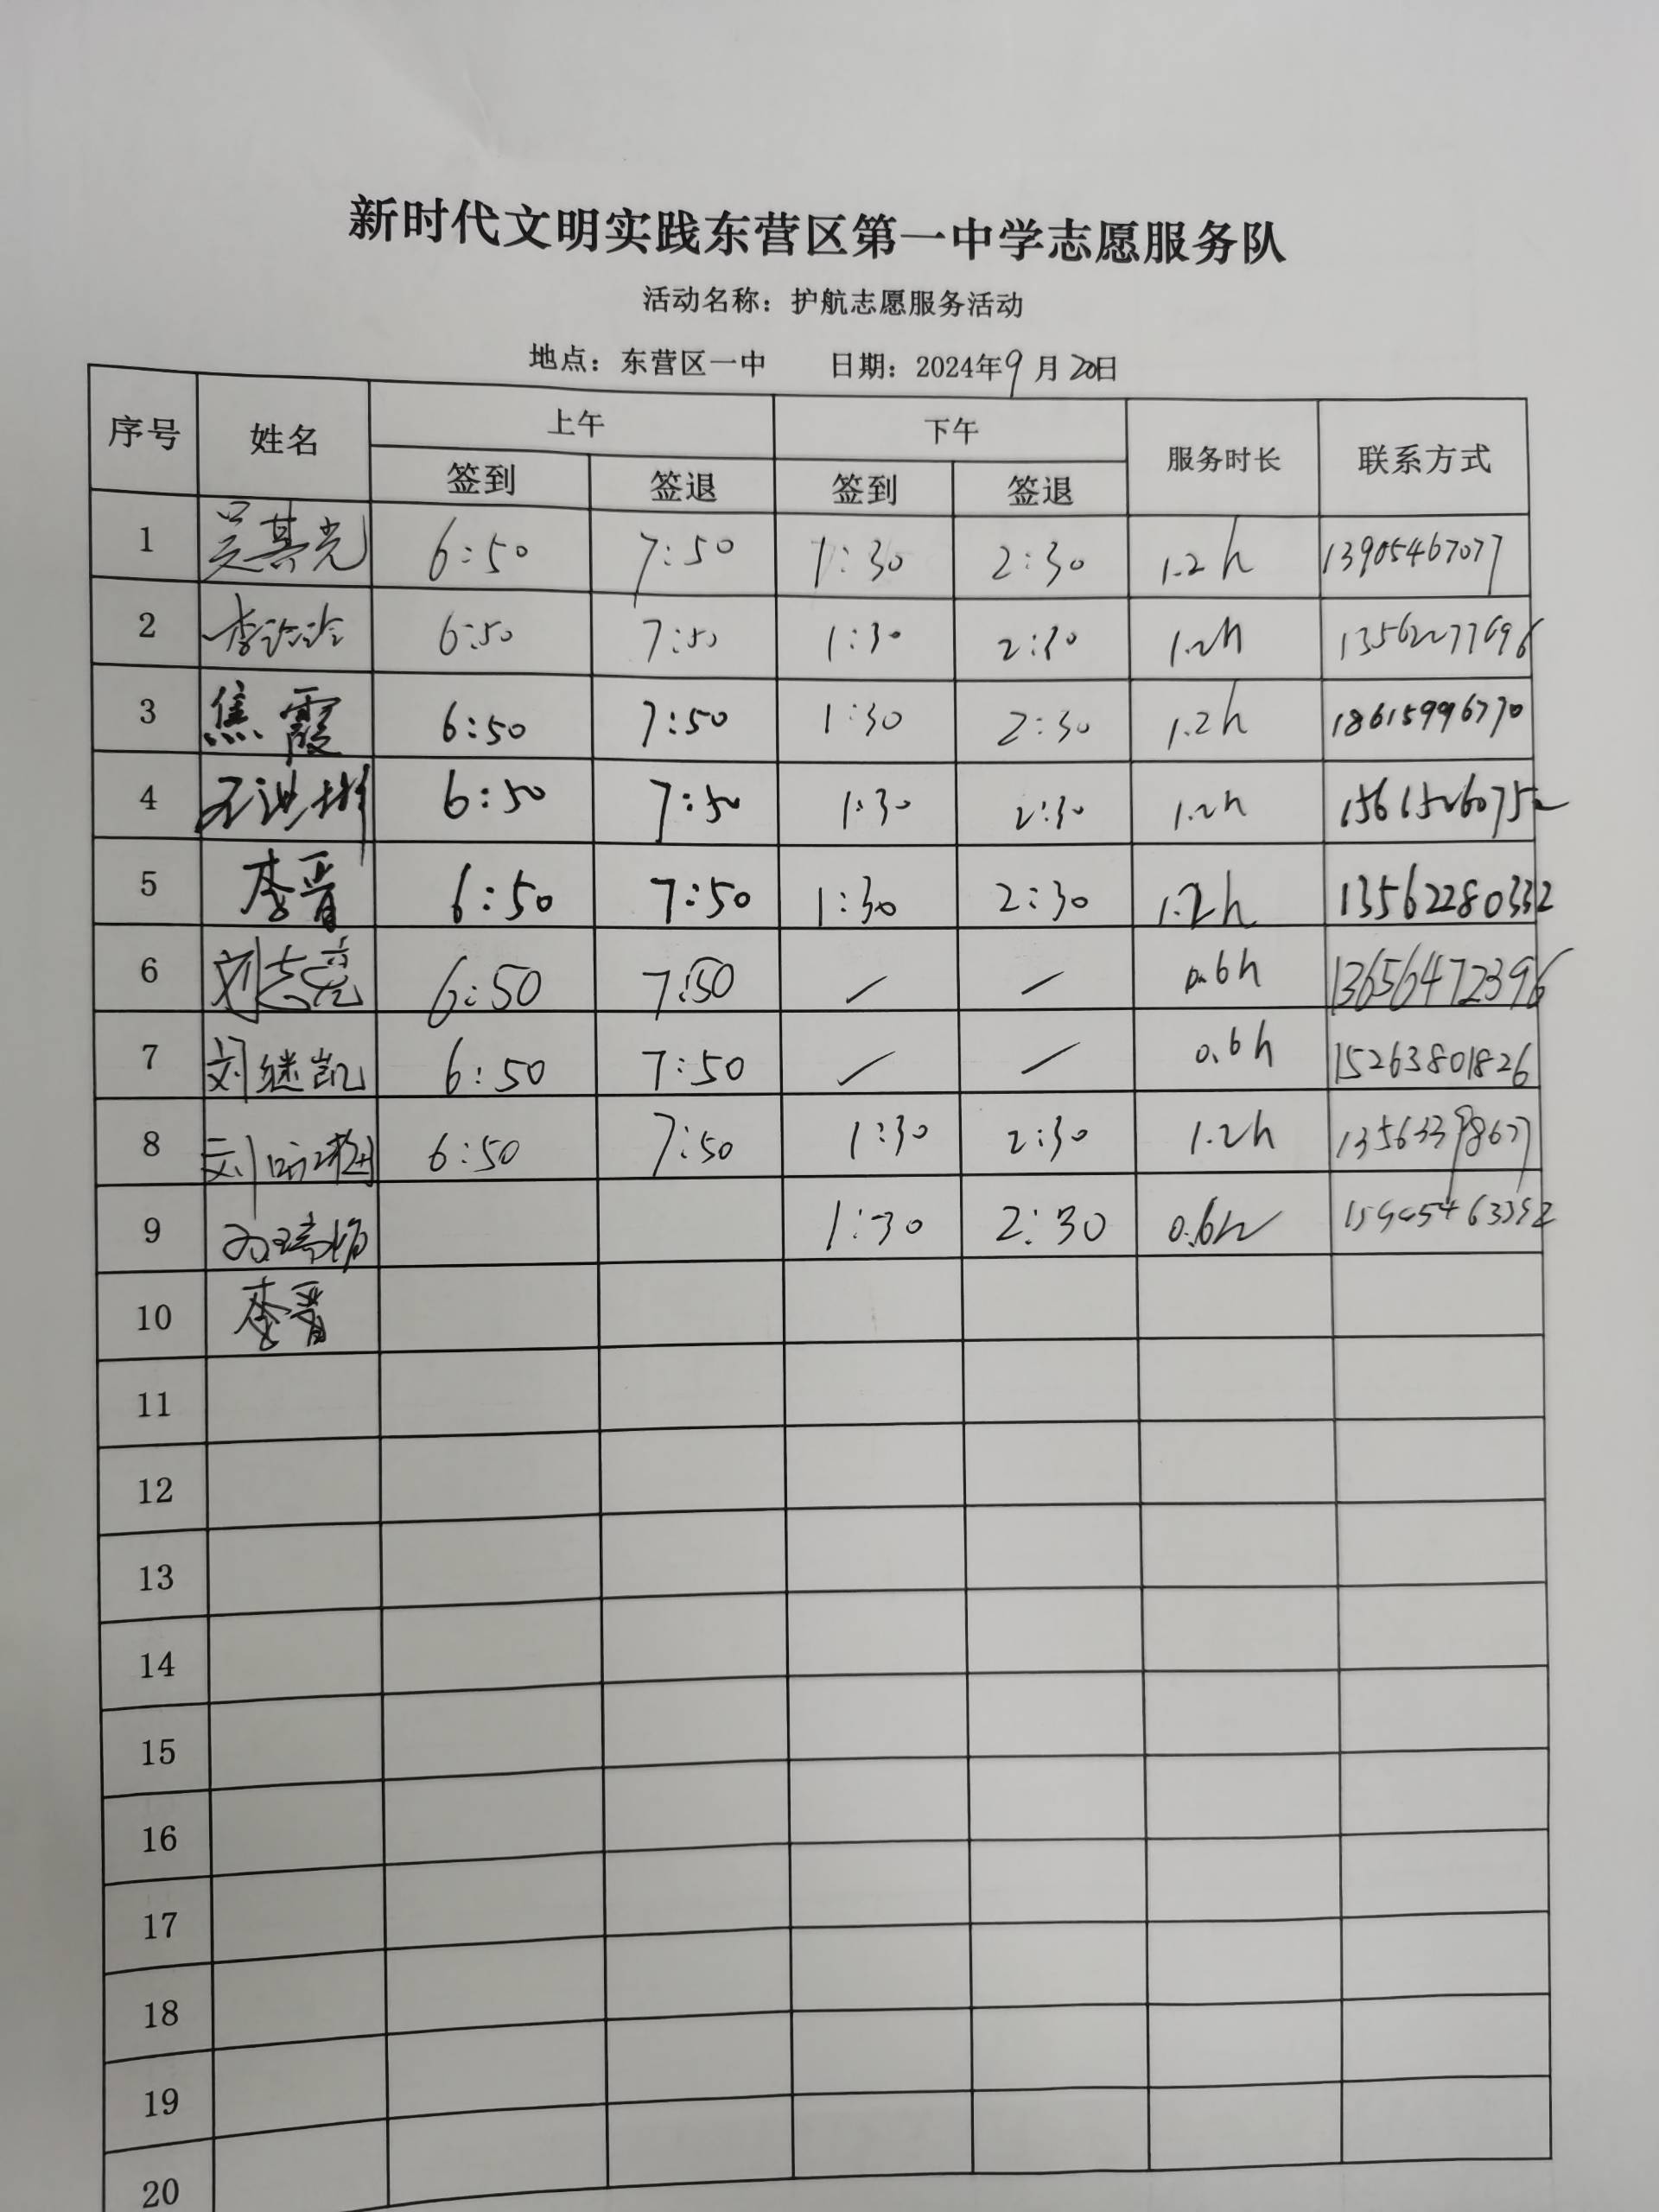 新时代文明实践东营区第一中学志愿服务队
活动名称：护航志愿服务活动
地点：东营区一中 日期：2024年9月20日
序号 姓名 上午 下午 服务时长 联系方式
签到 签退 签到 签退
1 吴其光 6:50 7:50 1:30 2:30 1.2h 13905467077
2 6:50 7:50 1:30 2:30 1.2h 13562277696
3 焦霞 6:50 7:50 1:30 2:30 1.2h 18615996770
4 6:50 7:50 1:30 2:30 1.2h 15615260752
5 李晋 6:50 7:50 1:30 2:30 1.2h 13562280332
6 刘志亮 6:50 7:50 / / 0.6h 13656472396
7 刘继凯 6:50 7:50 / / 0.6h 15263801826
8 6:50 7:50 1:30 2:30 1.2h 13563398677
9 1:30 2:30 0.6h
10 李晋
11
12
13
14
15
16
17
18
19
20